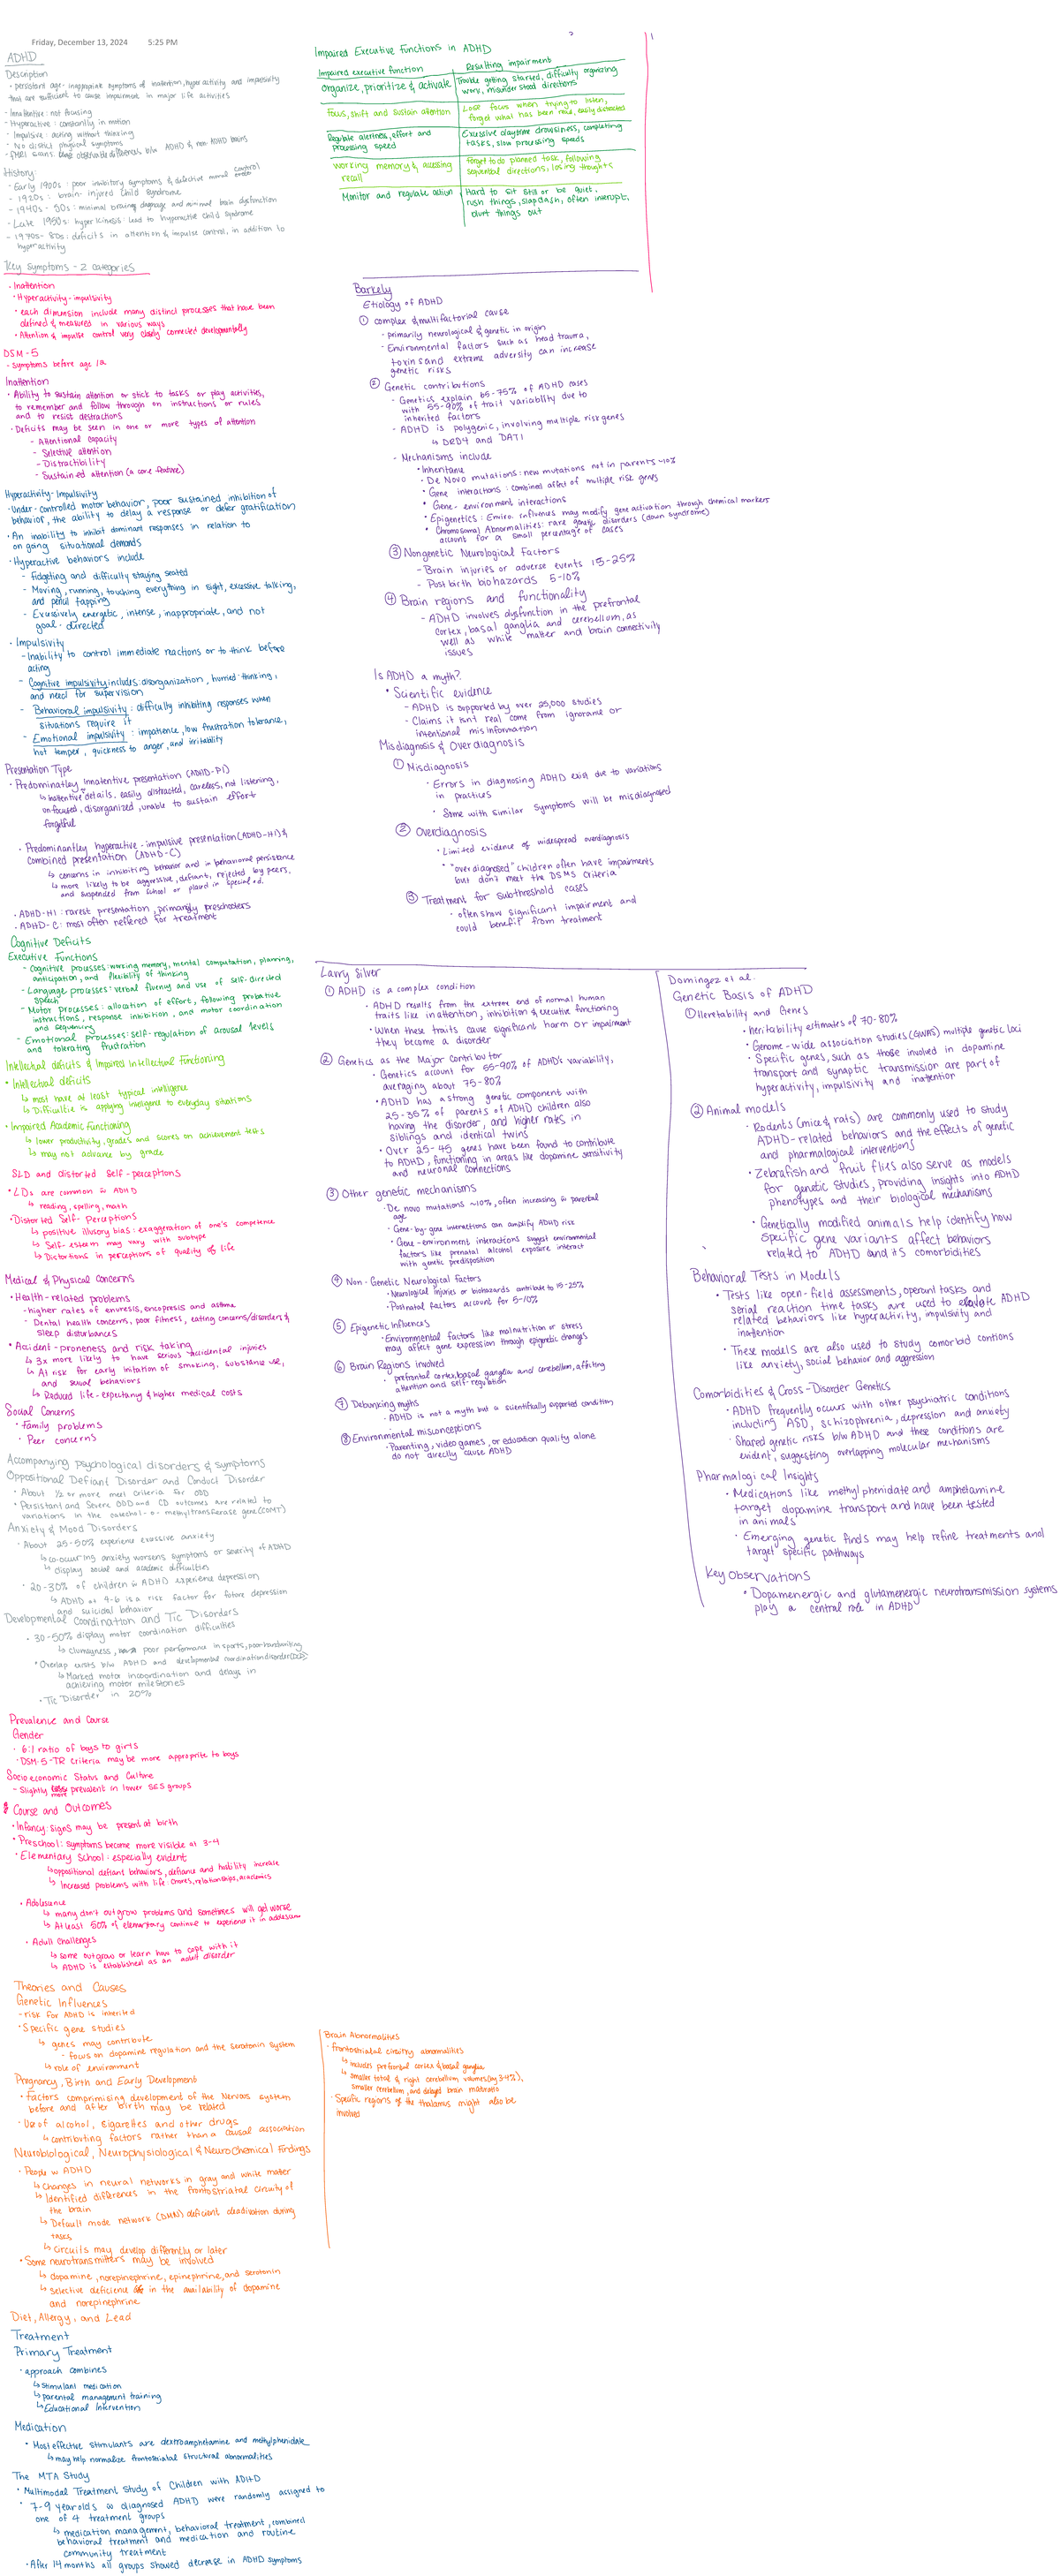 Friday, December 13, 2024 5:25 PM
ADHD
Description
· persistant age-inappropriate symptoms of inattention, hyperactivity and impulsivity
that are sufficient to cause impairment in major life activities
- Innattentive: not focusing
- Hyperactive: constantly in motion
- Impulsive: acting without thinking
- No distict physical symptoms
- fMRI scans: observable differences b/w ADHD & non-ADHD brains
History:
- Early 1900s: poor inhibitory symptoms & defective moral control
- 1920s: brain-injured child syndrome
- 1940s-50s: minimal brain damage and minimal brain dysfunction
- Late 1950s: hyperkiness: lead to hyperactive child syndrome
- 1970s-80s: deficits in attention & impulse control, in addition to
hyperactivity
Key Symptoms - 2 categories
· Inattention
· Hyperactivity-impulsivity
· each dimension include many distinct processes that have been
defined & measured in various ways
· Attention & impulse control very closely connected developmentally
DSM-5
- Symptoms before age 12
Inattention
· Ability to sustain attention or stick to tasks or play activities,
to remember and follow through on instructions or rules
and to resist destractions
· Deficits may be seen in one or more types of attention
- Attentional capacity
- Selective attention
- Distractibility
- Sustained attention (a core feature)
Hyperactivity-Impulsivity
· Under-controlled motor behavior, poor sustained inhibition of
behavior, the ability to delay a response or defer gratification
· An inability to inhibit dominant responses in relation to
on going situational demands
· Hyperactive behaviors include
- Fidgeting and difficulty staying seated
- Moving, running, touching everything in sight, excessive talking,
and pencil tapping
- Excessively energetic, intense, inappropriate, and not
goal-directed
· Impulsivity
- Inability to control immediate reactions or to think before
acting
- Cognitive impulsivity includes: disorganization, hurried thinking,
and need for supervision
- Behavioral impulsivity: difficulty inhibiting responses when
situations require it
- Emotional impulsivity: impatience, low frustration tolerance,
hot temper, quickness to anger, and irritability
Presentation Type
· Predominatley innatentive presentation (ADHD-PI)
↳ Inattentive details, easily distracted, careless, not listening,
unfocused, disorganized, unable to sustain effort
forgetful
· Predominantley hyperactive-impulsive presentation (ADHD-HI) &
combined presentation (ADHD-C)
↳ concerns in inhibiting behavior and in behavioral persistence
↳ more likely to be aggressive, defiant, rejected by peers,
and suspended from school or placed in special ed.
· ADHD-HI: rarest presentation, primarily preschoolers
· ADHD-C: most often reffered for treatment
Cognitive Deficits
Executive Functions
- Cognitive processes: working memory, mental computation, planning,
anticipation, and flexibility of thinking
- Language processes: verbal fluency and use of self-directed
speech
- Motor processes: allocation of effort, following prohibitive
instructions, response inhibition, and motor coordination
and sequencing
- Emotional processes: self-regulation of arousal levels
and tolerating frustration
Intellectual deficits & Impaired Intellectual Functioning
· Intellectual deficits
↳ most have at least typical intelligence
↳ Difficultie is applying intelligence to everyday situations
· Impaired Academic Functioning
↳ lower productivity, grades and scores on achievement tests
↳ may not advance by grade
SLD and distorted Self-perceptions
· LDs are common w ADHD
↳ reading, spelling, math
· Distorted Self-Perceptions
↳ positive illusory bias: exaggeration of one's competence
↳ Self-esteem may vary with subtype
↳ Distortions in perceptions of quality of life
Medical & Physical Concerns
· Health-related problems
- higher rates of enuresis, encopresis and asthma
- Dental health concerns, poor fitness, eating concerns/disorders &
sleep disturbances
· Accident-proneness and risk taking
↳ 3x more likely to have serious accidental injuries
↳ At risk for early initation of smoking, substance use,
and sexual behaviors
↳ Reduced life-expectancy & higher medical costs
Social Concerns
· Family problems
· Peer concerns
Accompanying psychological disorders & symptoms
Oppositional Defiant Disorder and Conduct Disorder
· About 1/2 or more meet criteria for ODD
· Persistant and severe ODD and CD outcomes are related to
variations in the catechol-o-methyltransferase gene (COMT)
Anxiety & Mood Disorders
· About 25-50% experience excessive anxiety
↳ co-occuring anxiety worsens symptoms or severity of ADHD
↳ display social and academic difficulties
· 20-30% of children w ADHD experience depression
↳ ADHD at 4-6 is a risk factor for future depression
and suicidal behavior
Developmental Coordination and Tic Disorders
· 30-50% display motor coordination difficulties
↳ clumsyness, poor performance in sports, poor handwriting
· Overlap exists b/w ADHD and developmental coordination disorder (DCD)
↳ Marked motor incoordination and delays in
achieving motor milestones
· Tic Disorder in 20%
Prevalence and Course
Gender
· 6:1 ratio of boys to girls
· DSM-5-TR criteria may be more approprite to boys
Socioeconomic Status and Culture
- Slightly more prevalent in lower SES groups
Course and Outcomes
· Infancy: signs may be present at birth
· Preschool: symptoms become more visible at 3-4
· Elementary School: especially evident
↳ oppositional defiant behaviors, defiance and hostility increase
↳ Increased problems with life: chores, relationships, academics
· Adolesence
↳ many don't outgrow problems and sometimes will get worse
↳ At least 50% of elementary continue to experience it in adolescence
· Adult Challenges
↳ some outgrow or learn how to cope with it
↳ ADHD is established as an adult disorder
Theories and Causes
Genetic Influences
- risk for ADHD is inherited
· Specific gene studies
↳ genes may contribute
- focus on dopamine regulation and the serotonin system
↳ role of environment
Pregnancy, Birth and Early Development
· Factors comprimising development of the Nervous system
before and after birth may be related
· Use of alcohol, cigarettes and other drugs
↳ contributing factors rather than a causal association
Neurobiological, Neurophysiological & NeuroChemical Findings
· People w ADHD
↳ Changes in neural networks in gray and white matter
↳ Identified differences in the frontostriatal circuity of
the brain
↳ Default mode network (DMN) deficient deactivation during
tasks
↳ Circuits may develop differently or later
· Some neurotransmitters may be involved
↳ dopamine, norepinephrine, epinephrine, and serotonin
↳ selective deficience in the availability of dopamine
and norepinephrine
Diet, Allergy, and Lead
Treatment
Primary Treatment
- approach combines
↳ Stimulant medication
↳ parental management training
↳ Educational Intervention
Medication
· Most effective stimulants are dextroamphetamine and methylphenidate
↳ may help normalize frontostriatal structural abnormalities
The MTA Study
· Multimodal Treatment Study of Children with ADHD
· 7-9 year olds w diagnosed ADHD were randomly assigned to
one of 4 treatment groups
↳ medication management, behavioral treatment, combined
behavioral treatment and medication and routine
community treatment
· After 14 months all groups showed decrease in ADHD symptoms
Impaired Executive Functions in ADHD
Impaired executive function Resulting impairment
organize, prioritize & activate Trouble getting started, difficulty organizing
work, misunderstood directions
focus, shift and sustain attention Lose focus when trying to listen,
forget what has been read, easily distracted
Regulate alertness, effort and
processing speed
Excessive daytime drowsiness, completing
tasks, slow processing speeds
working memory & accessing
recall
forget to do planned task, following
sequential directions, losing thoughts
Monitor and regulate action Hard to sit still or be quiet,
rush things, slapdash, often inerrupt,
blurt things out
Barkely
Etiology of ADHD
① complex & multifactorial cause
- primarily neurological & genetic in origin
- Environmental factors such as head trauma,
toxins and extreme adversity can increase
genetic risks
② Genetic contributions
- Genetics explain 65-75% of ADHD cases
with 55-90% of trait variability due to
inherited factors
- ADHD is polygenic, involving multiple risk genes
↳ DRD4 and DAT1
- Mechanisms include
· Inheritance
· De Novo mutations: new mutations not in parents ~10%
· Gene interactions: combined affect of multiple risk genes
· Gene-environment interactions
· Epigenetics: Enviro. influences may modify gene activation through chemical markers
· Chromosomal Abnormalities: rare genetic disorders (down syndrome)
account for a small percentage of cases
③ Nongenetic Neurological Factors
- Brain injuries or adverse events 15-25%
- Post birth biohazards 5-10%
④ Brain regions and functionality
- ADHD involves dysfunction in the prefrontal
cortex, basal ganglia and cerebellum, as
well as white matter and brain connectivity
issues
Is ADHD a myth?
· Scientific evidence
- ADHD is supported by over 25,000 studies
- Claims it isnt real come from ignorance or
intentional misinformation
Misdiagnosis & Overdiagnosis
① Misdiagnosis
· Errors in diagnosing ADHD exist due to variations
in practices
· Some with similar symptoms will be misdiagnosed
② Overdiagnosis
· Limited evidence of widespread overdiagnosis
· "over diagnosed" children often have impairments
but don't meet the DSM5 criteria
③ Treatment for subthreshold cases
- often show significant impairment and
could benefit from treatment
Larry Silver
① ADHD is a complex condition
· ADHD results from the extreme end of normal human
traits like inattention, inhibition & executive functioning
· When these traits cause significant harm or impairment
they become a disorder
② Genetics as the Major Contributor
· Genetics account for 55-90% of ADHD's variability,
averaging about 75-80%
· ADHD has a strong genetic component with
25-35% of parents of ADHD children also
having the disorder, and higher rates in
siblings and identical twins
· Over 25-45 genes have been found to contribute
to ADHD, functioning in areas like dopamine sensitivity
and neuronal connections
③ Other genetic mechanisms
· De novo mutations ~10%, often increasing w parental
age
· Gene-by-gene interactions can amplify ADHD risk
· Gene-environment interactions suggest environmental
factors like prenatal alcohol exposure interact
with genetic predisposition
④ Non-Genetic Neurological Factors
· Neurological injuries or biohazards contribute to 15-25%
· Postnatal factors account for 5-10%
⑤ Epigenetic Influences
· Environmental factors like malnutrition or stress
may affect gene expression through epigenetic changes
⑥ Brain Regions involved
· prefrontal cortex, basal ganglia and cerebellum, affecting
attention and self-regulation
⑦ Debunking myths
- ADHD is not a myth but a scientifically supported condition
⑧ Environmental misconceptions
· Parenting, video games, or education quality alone
do not directly cause ADHD
Domingez et al.
Genetic Basis of ADHD
① Heretability and Genes
· heritability estimates of 70-80%
· Genome-wide association studies (GWAS) multiple genetic loci
· Specific genes, such as those involved in dopamine
transport and synaptic transmission are part of
hyperactivity, impulsivity and inattention
② Animal models
· Rodents (mice & rats) are commonly used to study
ADHD-related behaviors and the effects of genetic
and pharmalogical interventions
· Zebrafish and fruit flies also serve as models
for genetic studies, providing insights into ADHD
phenotypes and their biological mechanisms
· Genetically modified animals help identify how
specific gene variants affect behaviors
related to ADHD and its comorbidities
Behavioral Tests in Models
· Tests like open-field assessments, operant tasks and
serial reaction time tasks are used to ADHD
related behaviors like hyperactivity, impulsivity and
inattention
· These models are also used to study comorbid contions
like anxiety, social behavior and aggression
Comorbidities & Cross-Disorder Genetics
· ADHD frequently occurs with other psychiatric conditions
including ASD, schizophrenia, depression and anxiety
· Shared genetic risks b/w ADHD and these conditions are
evident, suggesting overlapping molecular mechanisms
Pharmalogical Insights
· Medications like methylphenidate and amphetamine
target dopamine transport and have been tested
in animals
· Emerging genetic finds may help refine treatments and
target specific pathways
Key Observations
· Dopamenergic and glutamenergic neurotransmission systems
play a central role in ADHD
Brain Abnormalities
· frontostriatal circuitry abnormalities
↳ includes prefrontal cortex & basal ganglia
↳ smaller total & right cerebellum volumes (by 3-4%),
smaller cerebellum, and delayed brain maturatio
· Specific regions of the thalamus might also be
involved